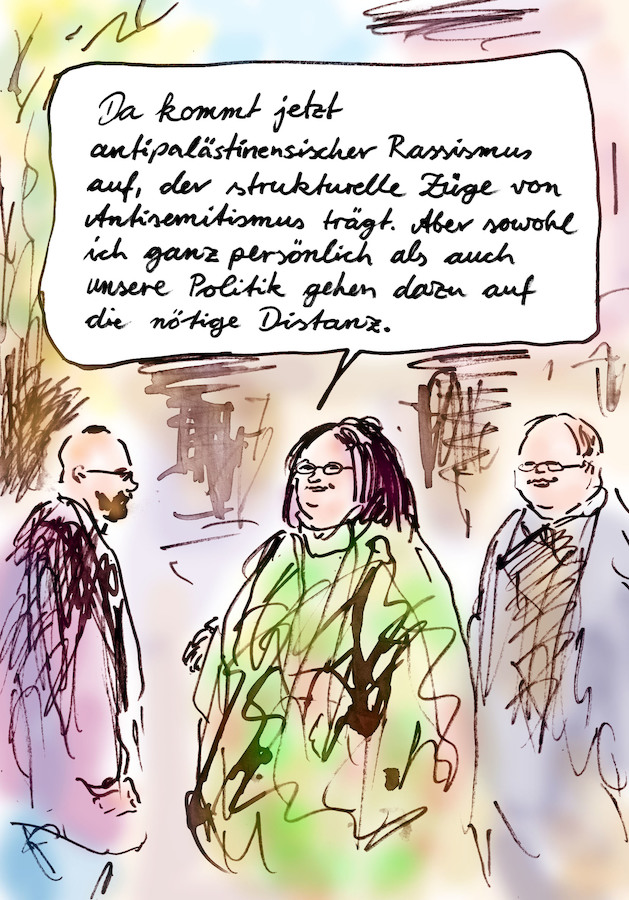 Da kommt jetzt
antipalästinensischer Rassismus
auf, der strukturelle Züge von
Antisemitismus trägt. Aber sowohl
ich ganz persönlich als auch
unsere Politik gehen dazu auf
die nötige Distanz.